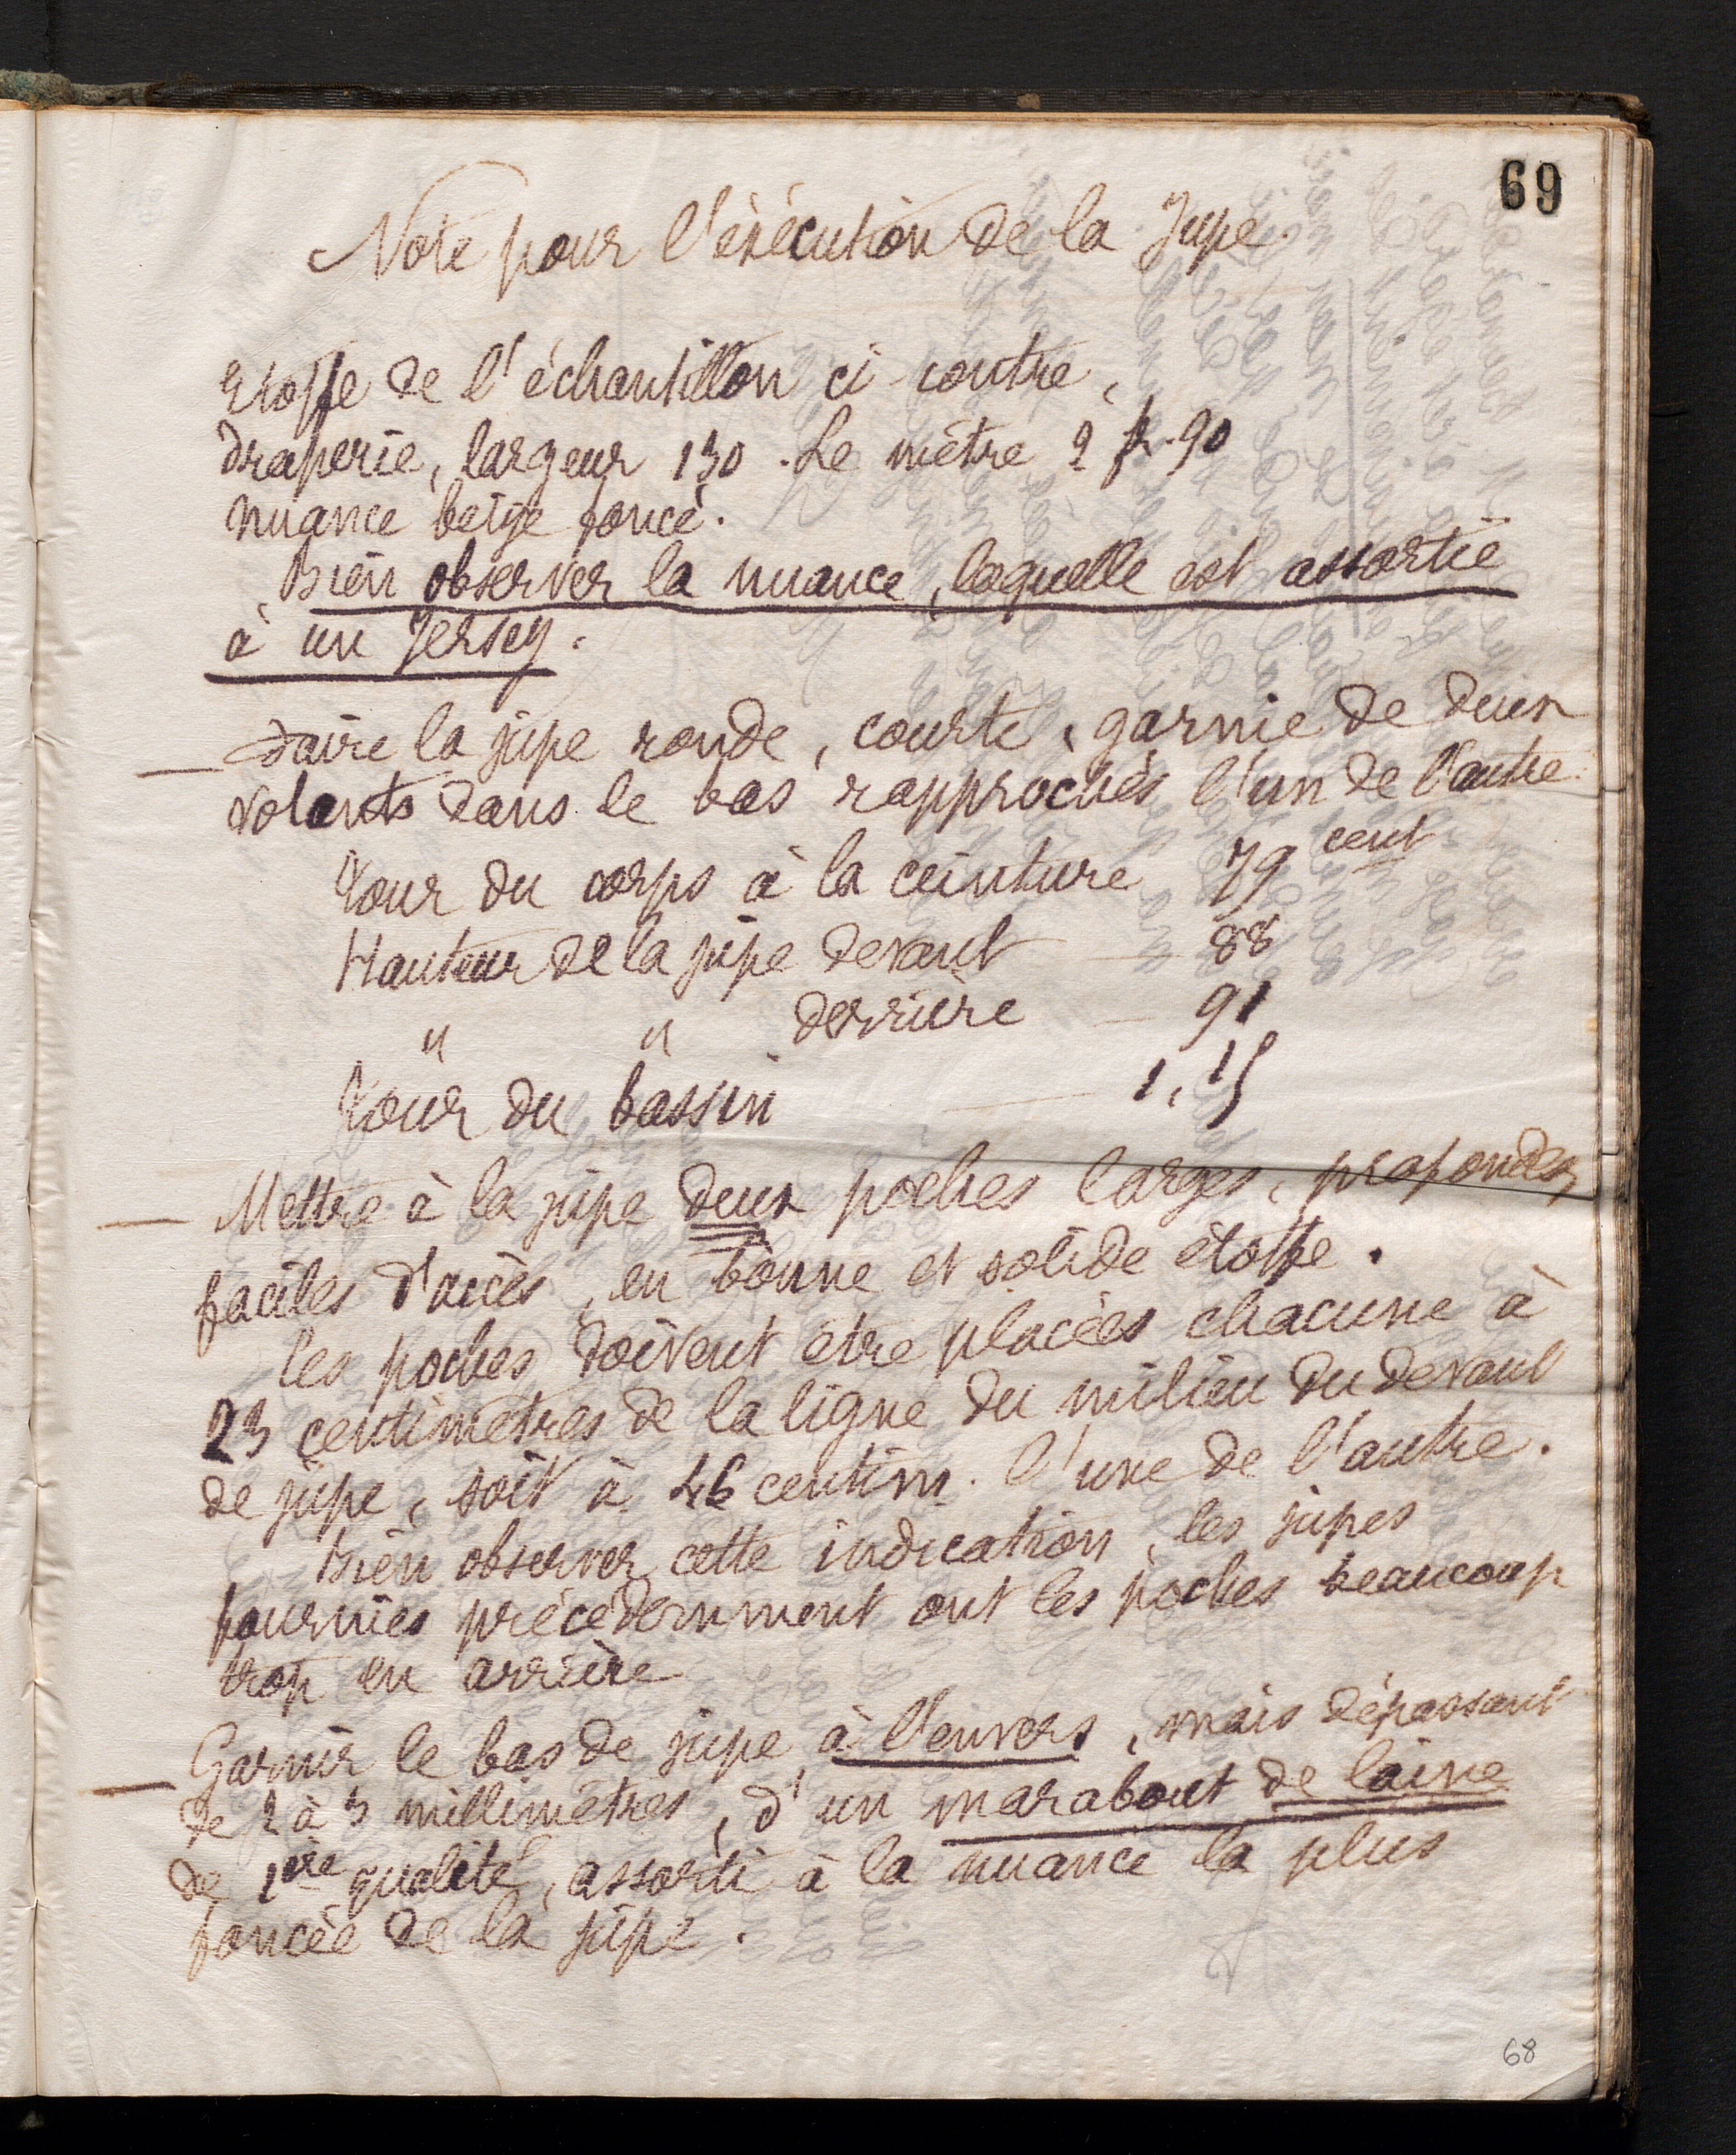 69
Note pour l'exécution de la Jupe.
Etoffe de l'échantillon ci-contre,
draperie, largeur 130. Le mètre 2 fr. 90
nuance beige foncé.
Bien observer la nuance, laquelle est assortie
à un Jersey.
— Faire la jupe ronde, courte, garnie de deux
volants dans le bas rapprochés l'un de l'autre.
Tour du corps à la ceinture 79 cent
Hauteur de la jupe devant — 88
" " derrière — 91
Tour du bassin — 1,15
— Mettre à la jupe deux poches larges, profondes,
faciles d'accès, en bonne et solide étoffe.
Les poches doivent être placées chacune à
23 centimètres de la ligne du milieu du devant
de jupe, soit à 46 centim. l'une de l'autre.
Bien observer cette indication, les jupes
fournies précédemment ont les poches beaucoup
trop en arrière
— Garnir le bas de jupe à l'envers, mais dépassant
de 2 à 3 millimètres, d'un marabout de laine
de 1ère qualité, assorti à la nuance la plus
foncée de la jupe.
68